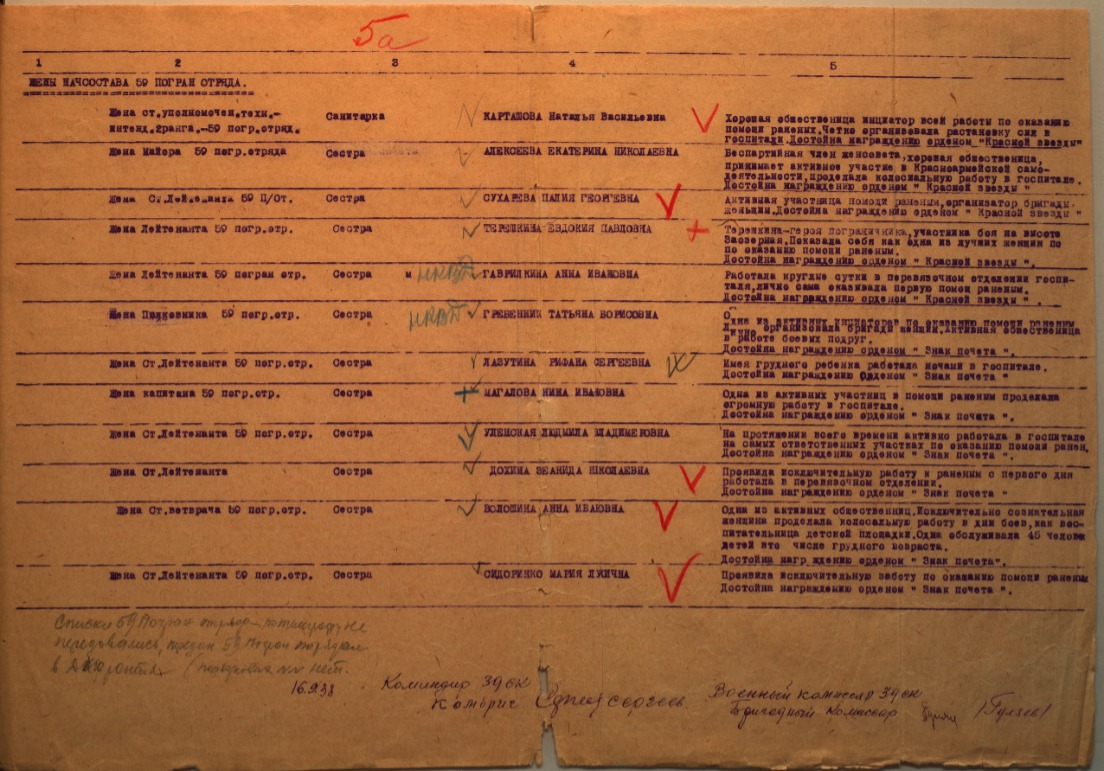 5а
1 2 3 4 5
ЖЕНЫ НАЧСОСТАВА 59 ПОГРАН ОТРЯДА.
Жена ст.уполномочен.техн.- Санитарка КАРТАШОВА Наталья Васильевна Хорошая общественница инциатор всей работы по оказанию
интенд.2ранга.-59 погр.отряд. помощи раненых.Четко организовала растановку сил в
госпитали.Достойна награждению орденом "Красной звезды"
Жена Майора 59 погр.отряда Сестра АЛЕКСЕЕВА ЕКАТЕРИНА НИКОЛАЕВНА Беспартийная член женсовета,хорошая общественница,
принимает активное участие в Красноармейской само-
деятельности,проделала колосиальную работу в госпитале.
Достойна награждению орденом " Красной звезды "
Жена Ст.Лейтенанта 59 П/От. Сестра СУХАРЕВА ПАЛИЯ ГЕОРГЕВНА Активная участница помощи раненым,организатор бригады
женьщин.Достойна награждению орденом " Красной звезды "
Жена Лейтенанта 59 погр.отр. Сестра ТЕРЕШКИНА ЕВДОКИЯ ПАВЛОВНА Терешкина-героя пограничника,участника боя на высоте
Заозерная.Показала себя как одна из лучших женщин по
по оказанию помощи раненым.
Достойна награждению орденом " Красной звезды ".
Жена Лейтенанта 59 погран отр. Сестра м НКВД ГАВРИЛКИНА АННА ИВАНОВНА Работала круглые сутки в перевязочном отделении госпи-
таля,лично сама оказивала первую помощ раненым.
Достойна награждению орденом " Красной звезды " .
Жена Полковника 59 погр.отр. Сестра НКВД ГРЕБЕННИК ТАТЬЯНА БОРИСОВНА О
Одна из активных инциаторов по оказанию помощи раненым
Лично организовала бригаду женщин,активная общественница
в работе боевых подруг.
Достойна награждению орденом " Знак почета ".
Жена Ст.Лейтенанта 59 погр.отр. Сестра ЛАЗУТИНА РИФАНА СЕРГЕЕВНА Имея грудного ребенка работала ночами в госпитале.
Достойна награждению орденом " Знак почета "
Жена капитана 59 погр.отр. Сестра МАГАЛОВА НИНА ИВАНОВНА Одна из активных участниц в помощи раненым проделала
огромную работу в госпитале.
Достойна награждению орденом " Знак почета ".
Жена Ст.Лейтенанта 59 погр.отр. Сестра УЛЕНСКАЯ ЛЮДМИЛА ВЛАДИМЕРОВНА На протяжении всего времени активно работала в госпитале
на самых ответственных участках по оказанию помощи ранен.
Достойна награждению орденом " Знак почета ".
Жена Ст.Лейтенанта Сестра ДОХИНА ЗЕАНИДА НИКОЛАЕВНА Проявила исключительную работу к раненым с первого дня
работала в перевязочном отделении.
Достойна награждению орденом " Знак почета "
Жена Ст.ветврача 59 погр.отр. Сестра ВОЛОШИНА АННА ИВАНОВНА Одна из активных общественниц.Исключительно сознательная
женщина проделала колосальную работу в дни боев,как вос-
питательница детской площадки.Одна обслуживала 45 человек
детей вто числе грудного возраста.
Достойна награждению орденом " Знак почета".
Жена Ст.Лейтенанта 59 погр.отр. Сестра СИДОРИНКО МАРИЯ ЛУКИЧНА Проявила исключительную заботу по оказанию помощи раненым
Достойна награждению орденом " Знак почета ".
Списки 59 Погран отряда
передовались, 59 Погран
в нет.
16.9.38 Командир 39 ск Военный комиссар 39 ск
Комбриг Сергеев Бригадный Комиссар /Гуляев/